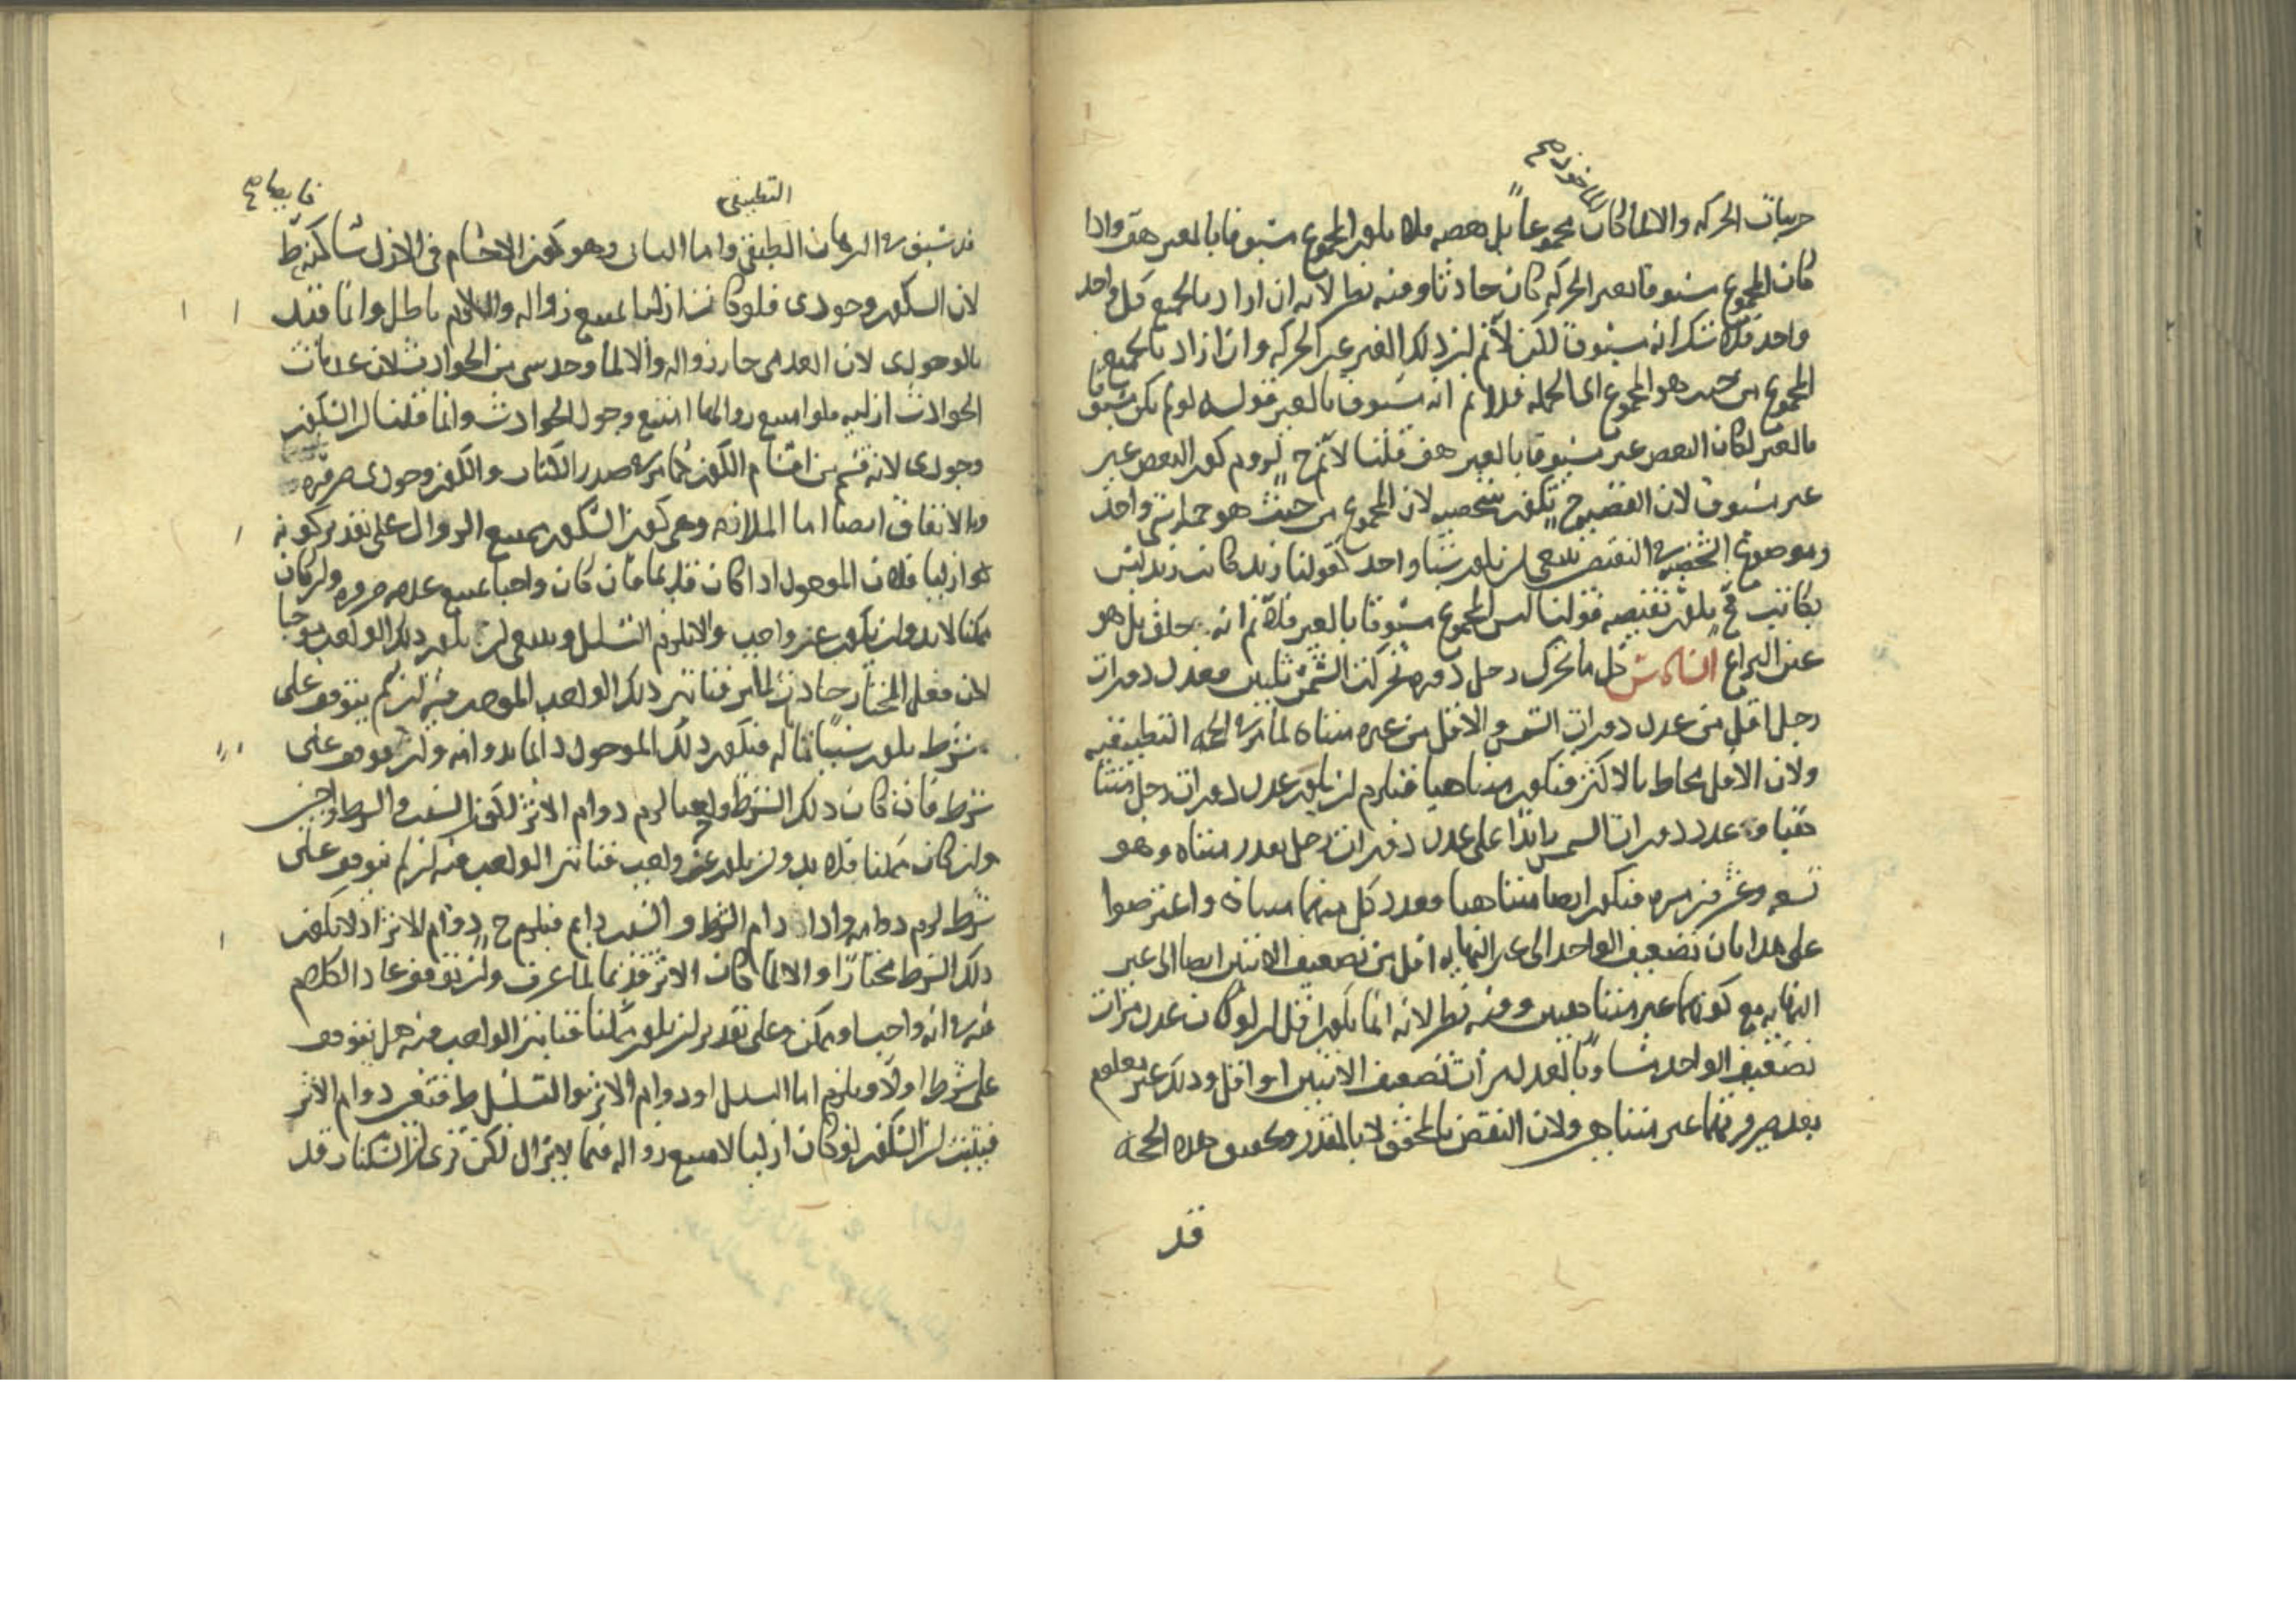 جزئيات الحركة والا لما كان مجموعا بل بعضه فلا يكون المجموع مسبوقا بالغير هف واذا
كان المجموع مسبوقا بغير الحركة كان حادثا وفيه نظر لانه ان اراد بالجميع كل واحد
واحد فلا شك انه مسبوق لكن لانم ان ذلك الغير غير الحركة وان اراد بالجميع
المجموع من حيث هو المجموع اى الجملة فلانم انه مسبوق بالغير قوله لو لم يكن مسبوقا
بالغير لكان البعض غير مسبوق بالغير هف قلنا لانم ح لزوم كون البعض غير
غير مسبوق لان القضية ح تكون شخصية لان المجموع من حيث هو جملة شى واحد
وموضوع الشخصية النقيض ينبغى ان يكون شيا واحد كقولنا زيد كاتب زيد ليس
بكاتب فح يكون نقيضه قولنا ليس المجموع مسبوقا بالغير فلانم انه خلف بل هو
عين النزاع السادس كل ما تحرك زحل دورة تحركت الشمس ثلثين فعدد دورات
زحل اقل من عدد دورات الشمس والاقل من غيره متناه لما مر فى الحجة التطبيقية
ولان الاقل محاط بالاكثر فيكون متناهيا فيلزم ان يكون عدد دورات زحل متنا
هيا وعدد دورات الشمس زائدا على عدد دورات زحل بعدد متناه وهو
تسع وعشرين مرة فيكون ايضا متناهيا فعدد كل منهما متناه واعترضوا
على هذا بان تضعيف الواحد الى غير النهاية اقل من تضعيف الاثنين ايضا الى غير
النهاية مع كونهما غير متناهيين وفيه نظر لانه انما يكون اقل ان لو كان عدد مرات
تضعيف الواحد مساويا لعدد مرات تضعيف الاثنين او اقل وذلك غير معلوم
بعد صيرورتهما غير متناهى ولان النقض بالمحقق لا بالمقدر وتحقيق هذه الحجة
قد
التطبيقى
قد سبق فى البرهان التطبيقى واما الثانى وهو كون الاجسام فى الازل ساكنة فط
لان السكون وجودى فلو كان ازليا يمتنع زواله واللازم باطل وانما قيد
بالوجودى لان العدمى جاز زواله والا لما وجد شى من الحوادث لان عدمات
الحوادث ازلية فلو امتنع زوالها امتنع وجود الحوادث وانما قلنا ان السكون
وجودى لانه قسم من اقسام الكون كما مر فى صدر الكتاب والكون وجودى ضرورة
وبالاتفاق ايضا اما الملازمة وهى كون السكون يمتنع الزوال على تقدير كونه
ازليا فلان الموجود اذا كان قديما فان كان واجبا يمتنع عدمه ضرورة وان كان
ممكنا لابد وان يكون عن واجب والا يلزم التسلسل وينبغى ان يكون ذلك الواجب موجبا
لان فعل المختار حادث لما مر فتاثير ذلك الواجب الموجب فيه ان لم يتوقف على
شرط يكون سببا تاما له فيكون ذلك الموجود دائما بدوامه وان توقف على
شرط فان كان ذلك الشرط واجبا لزم دوام الاثر لكون السبب والشرط واجبين
وان كان ممكنا فلا بد وان يكون عن واجب فتاثير الواجب فيه ان لم يتوقف على
شرط لزم دوامه واذا دام الشرط والسبب دايم فيلزم ح دوام الاثر اذ لا يكون
ذلك الشرط مختارا والا لما كان الاثر قديما لما عرف وان توقف عاد الكلام
فيه فى انه واجب او ممكن وعلى تقدير ان يكون ممكنا فتاثير الواجب فيه هل يتوقف
على شرط او لا ويلزم اما التسلسل او دوام الاثر والتسلسل ط فتعين دوام الاثر
فيثبت ان السكون لو كان ازليا لامتنع زواله فيما لايزال لكن نرى ان الساكنات قد